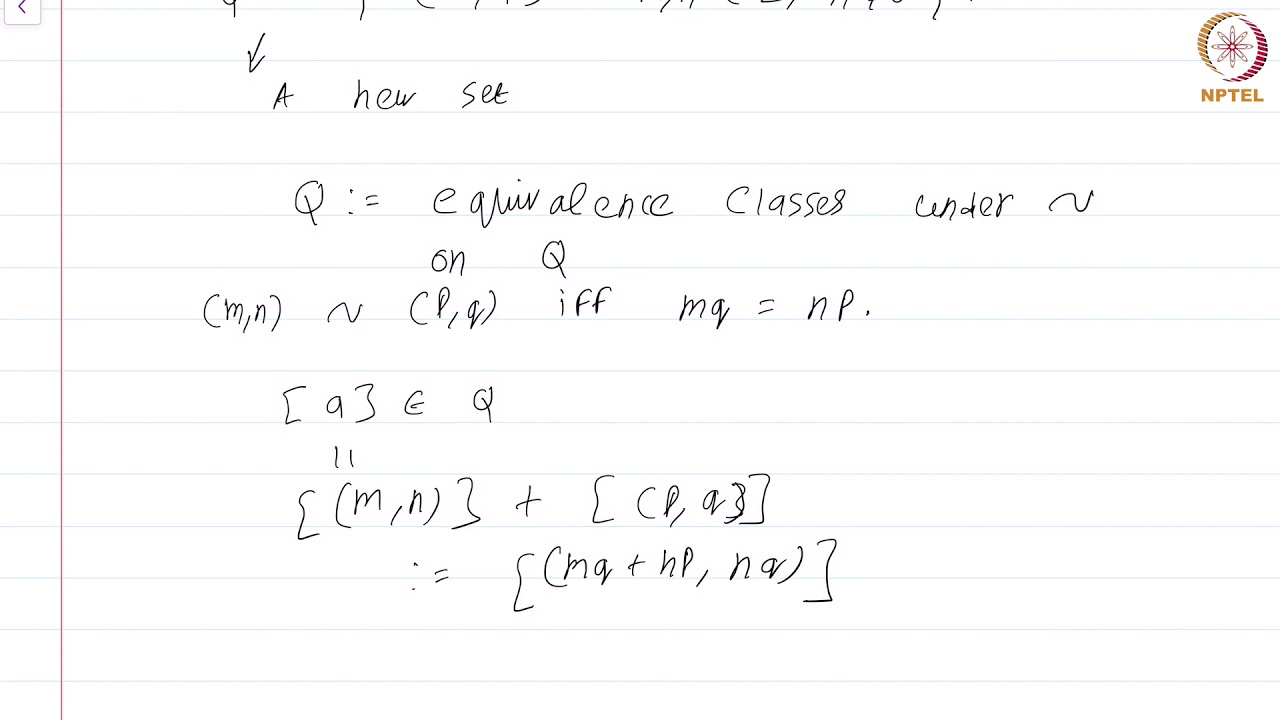 A new set
NPTEL
Q := equivalence classes under ~
on Q
(m,n) ~ (p,q) iff mq = np.
[a] ∈ Q
||
[(m,n)] + [(p,q)]
:= [(mq + np, nq)]